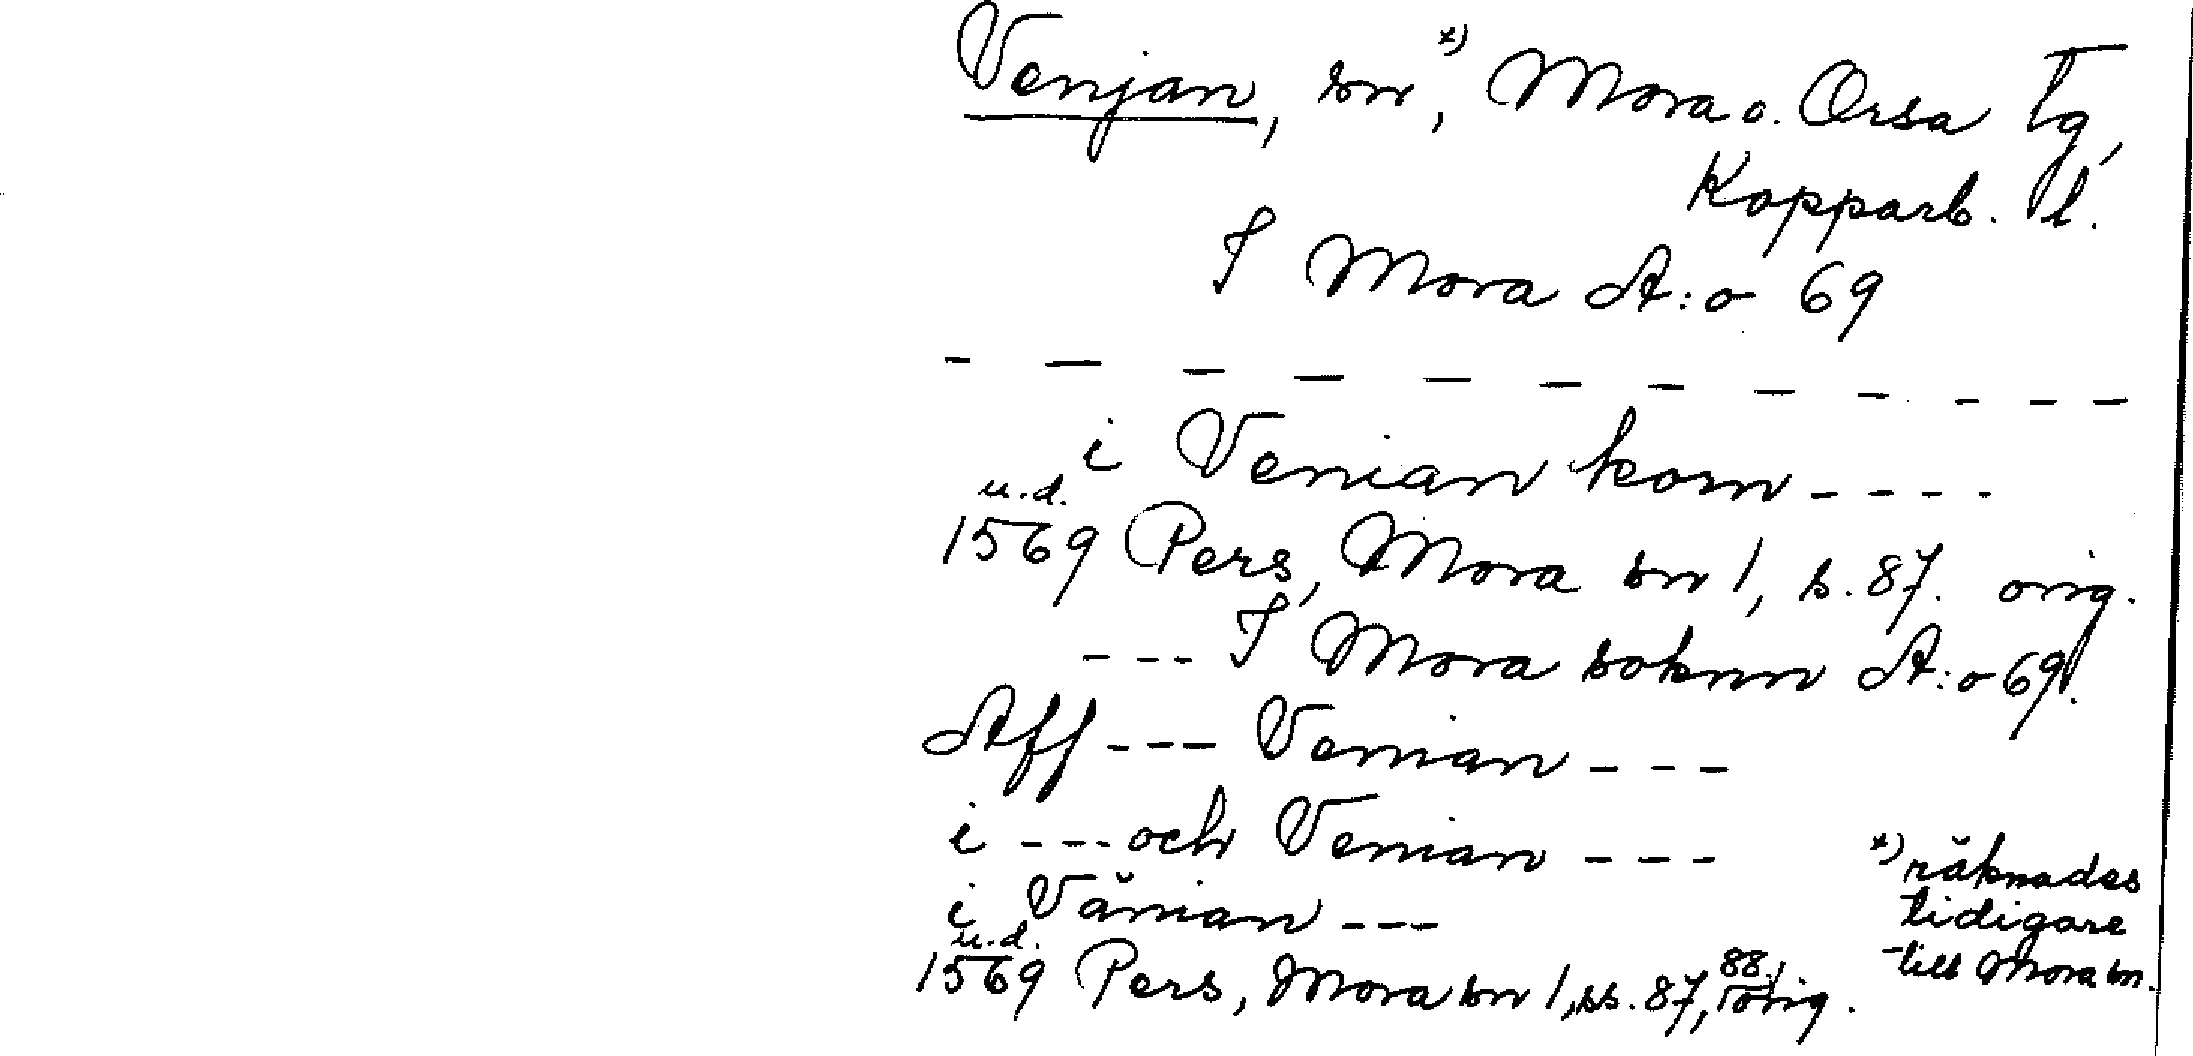 Venjan, sn x), Mora o. Orsa tg,
Kopparb. l.
I Mora A:o 69
- - - - - - - - - - - - -
i Venian kom - - - -
u.d.
1569 Pers, Mora sn 1, s. 87. orig.
- - - I Mora soknn A:o 69.
Aff - - - Venian - - -
i - - - och Venian - - -
i Vänian - - -
u.d.
1569 Pers, Mora sn 1, ss. 87, 88. orig.
x) räknades
tidigare
till Mora sn.